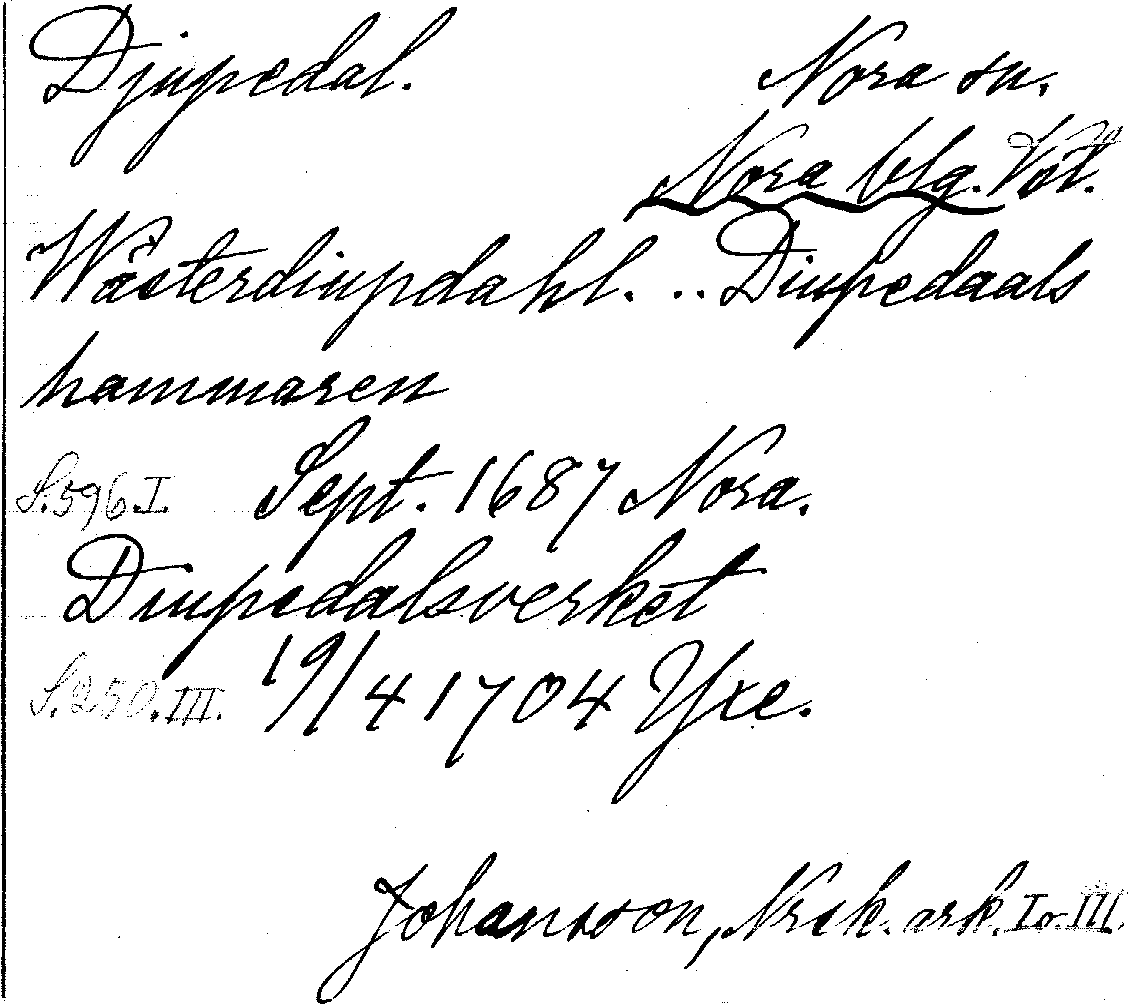 Djupedal. Nora sn.
Nora blg. Vstl.
Wästerdiupdahl. .. Diupedaals
hammaren
S. 596. I. Sept. 1687 Nora.
Diupedalsverket
S. 250. III. 19/4 1704 Yxe.
Johansson, Nrsk. ark. I o. III.